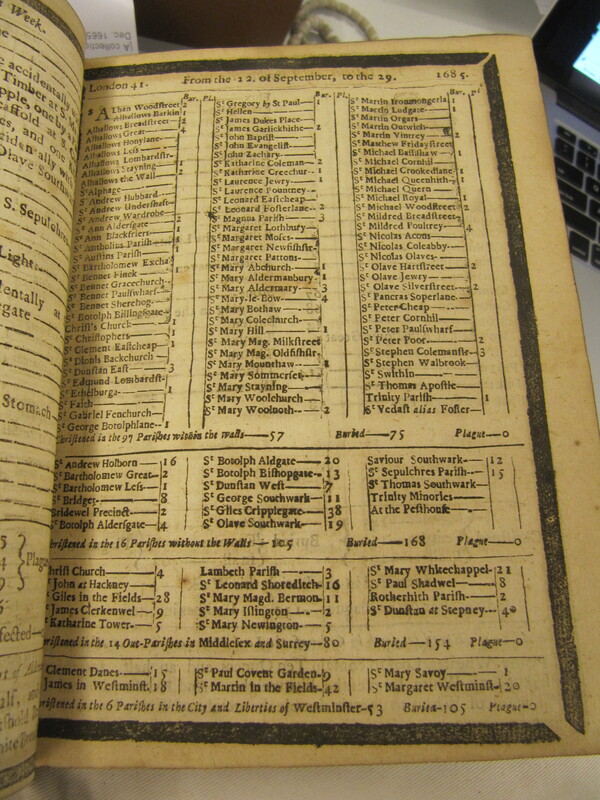 Week.
London 41. From the 22. of September, to the 29. 1685.
Bur. Pl. Bur. Pl. Bur. Pl
St Alban Woodstreet 2
Alhallows Barkin 1
Alhallows Breadstreet
Alhallows Great 4
Alhallows Honylane
Alhallows Less
Alhallows Lombardstr
Alhallows Stayning
Alhallows the Wall
St Alphage
St Andrew Hubbard
St Andrew Undershaft
St Andrew Wardrobe 2
St Ann Aldersgate
St Ann Blackfriers
St Antholins Parish
St Austins Parish
St Bartholomew Excha
St Bennet Finck
St Bennet Gracechurch
St Bennet Paulswharf
St Bennet Sherehog
St Botolph Billingsgate
Christ's Church 1
St Christophers
St Clement Eastcheap 1
St Dionis Backchurch
St Dunstan East 3
St Edmund Lombardst
St Ethelburga 1
St Faith
St Gabriel Fenchurch
St George Botolphlane 1
St Gregory by St Paul 1
St Hellen
St James Dukes Place
St James Garlickhithe 2
St John Baptist
St John Evangelist
St John Zachary
St Katharine Coleman 2
St Katharine Creechur 1
St Laurence Jewry
St Laurence Pountney
St Leonard Eastcheap
St Leonard Fosterlane 2
St Magnus Parish 3
St Margaret Lothbury
St Margaret Moses
St Margaret Newfishstr
St Margaret Pattons
St Mary Abchurch 1
St Mary Aldermanbury 1
St Mary Aldermary 3
St Mary-le-Bow 4
St Mary Bothaw
St Mary Colechurch
St Mary Hill 1
St Mary Mag. Milkstreet
St Mary Mag. Oldfishstr
St Mary Mounthaw
St Mary Sommerset
St Mary Stayning
St Mary Woolchurch
St Mary Woolnoth 2
St Martin Ironmongerla 1
St Martin Ludgate 1
St Martin Orgars
St Martin Outwich
St Martin Vintrey 2
St Matthew Fridaystreet
St Michael Bassishaw 1
St Michael Cornhil
St Michael Crookedlane 1
St Michael Queenhith
St Michael Quern
St Michael Royal 1
St Michael Woodstreet 2
St Mildred Breadstreet
St Mildred Poultrey 4
St Nicolas Acons
St Nicolas Coleabby
St Nicolas Olaves
St Olave Hartstreet 2
St Olave Jewry
St Olave Silverstreet 2
St Pancras Soperlane
St Peter Cheap
St Peter Cornhil
St Peter Paulswharf
St Peter Poor 2
St Stephen Colemanstr 3
St Stephen Walbrook
St Swithin
St Thomas Apostle
Trinity Parish 1
St Vedast alias Foster
Christened in the 97 Parishes within the Walls 57 Buried 75 Plague 0
St Andrew Holborn 16
St Bartholomew Great 2
St Bartholomew Less 1
St Bridget 8
Bridewel Precinct 2
St Botolph Aldersgate 4
St Botolph Aldgate 20
St Botolph Bishopsgate 13
St Dunstan West 7
St George Southwark 11
St Giles Cripplegate 38
St Olave Southwark 19
Saviour Southwark 12
St Sepulchres Parish 15
St Thomas Southwark
Trinity Minories
At the Pesthouse
Christened in the 16 Parishes without the Walls 105 Buried 168 Plague 0
Christ Church 4
St John at Hackney
St Giles in the Fields 28
St James Clerkenwel 9
St Katharine Tower 5
Lambeth Parish 3
St Leonard Shoreditch 16
St Mary Magd. Bermon 11
St Mary Islington 2
St Mary Newington 5
St Mary Whitechappel 21
St Paul Shadwel 8
Rotherhith Parish 2
St Dunstan at Stepney 40
Christened in the 14 Out-Parishes in Middlesex and Surrey 80 Buried 154 Plague 0
St Clement Danes 15
St James in Westminst. 18
St Paul Covent Garden 9
St Martin in the Fields 42
St Mary Savoy 1
St Margaret Westminst 20
Christened in the 6 Parishes in the City and Liberties of Westminster 53 Buried 105 Plague 0